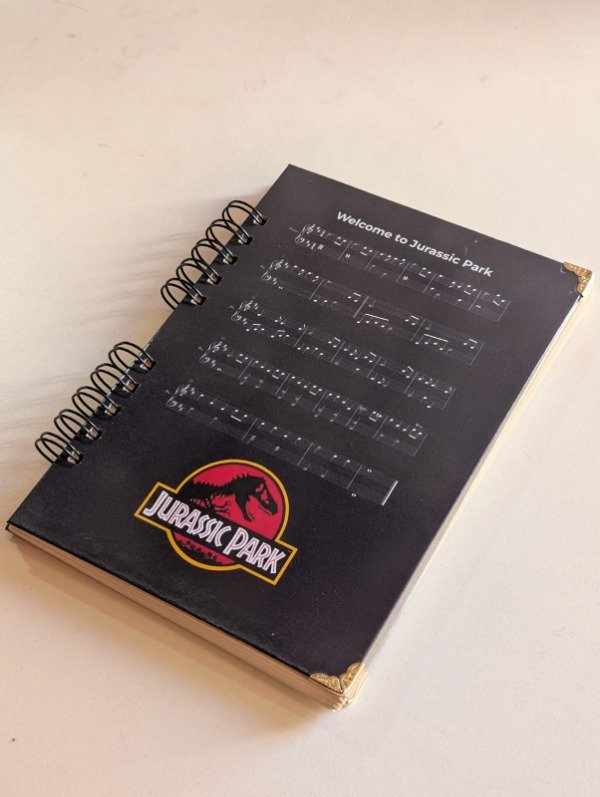 Welcome to Jurassic Park
JURASSIC PARK